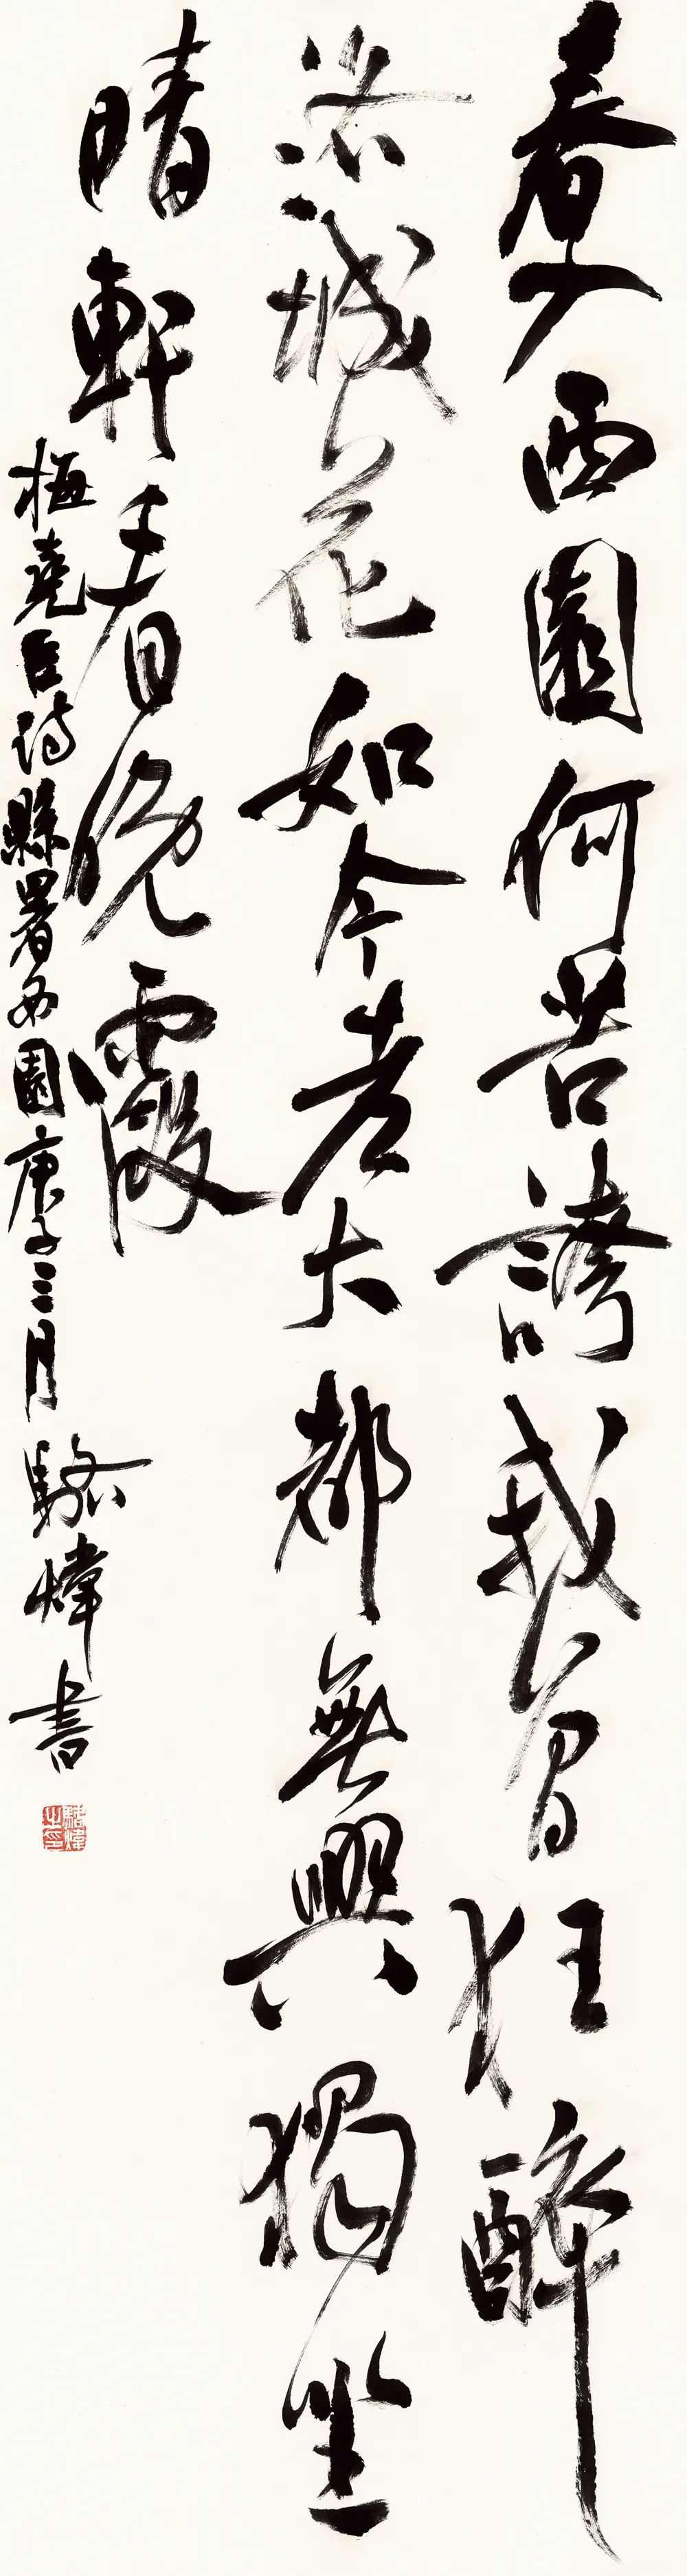 春入西園何苦誇我曾狂醉
洛城花如今老大都無興獨坐
晴軒看晚霞
梅堯臣詩縣署西園庚子三月駱煒書
駱煒之印